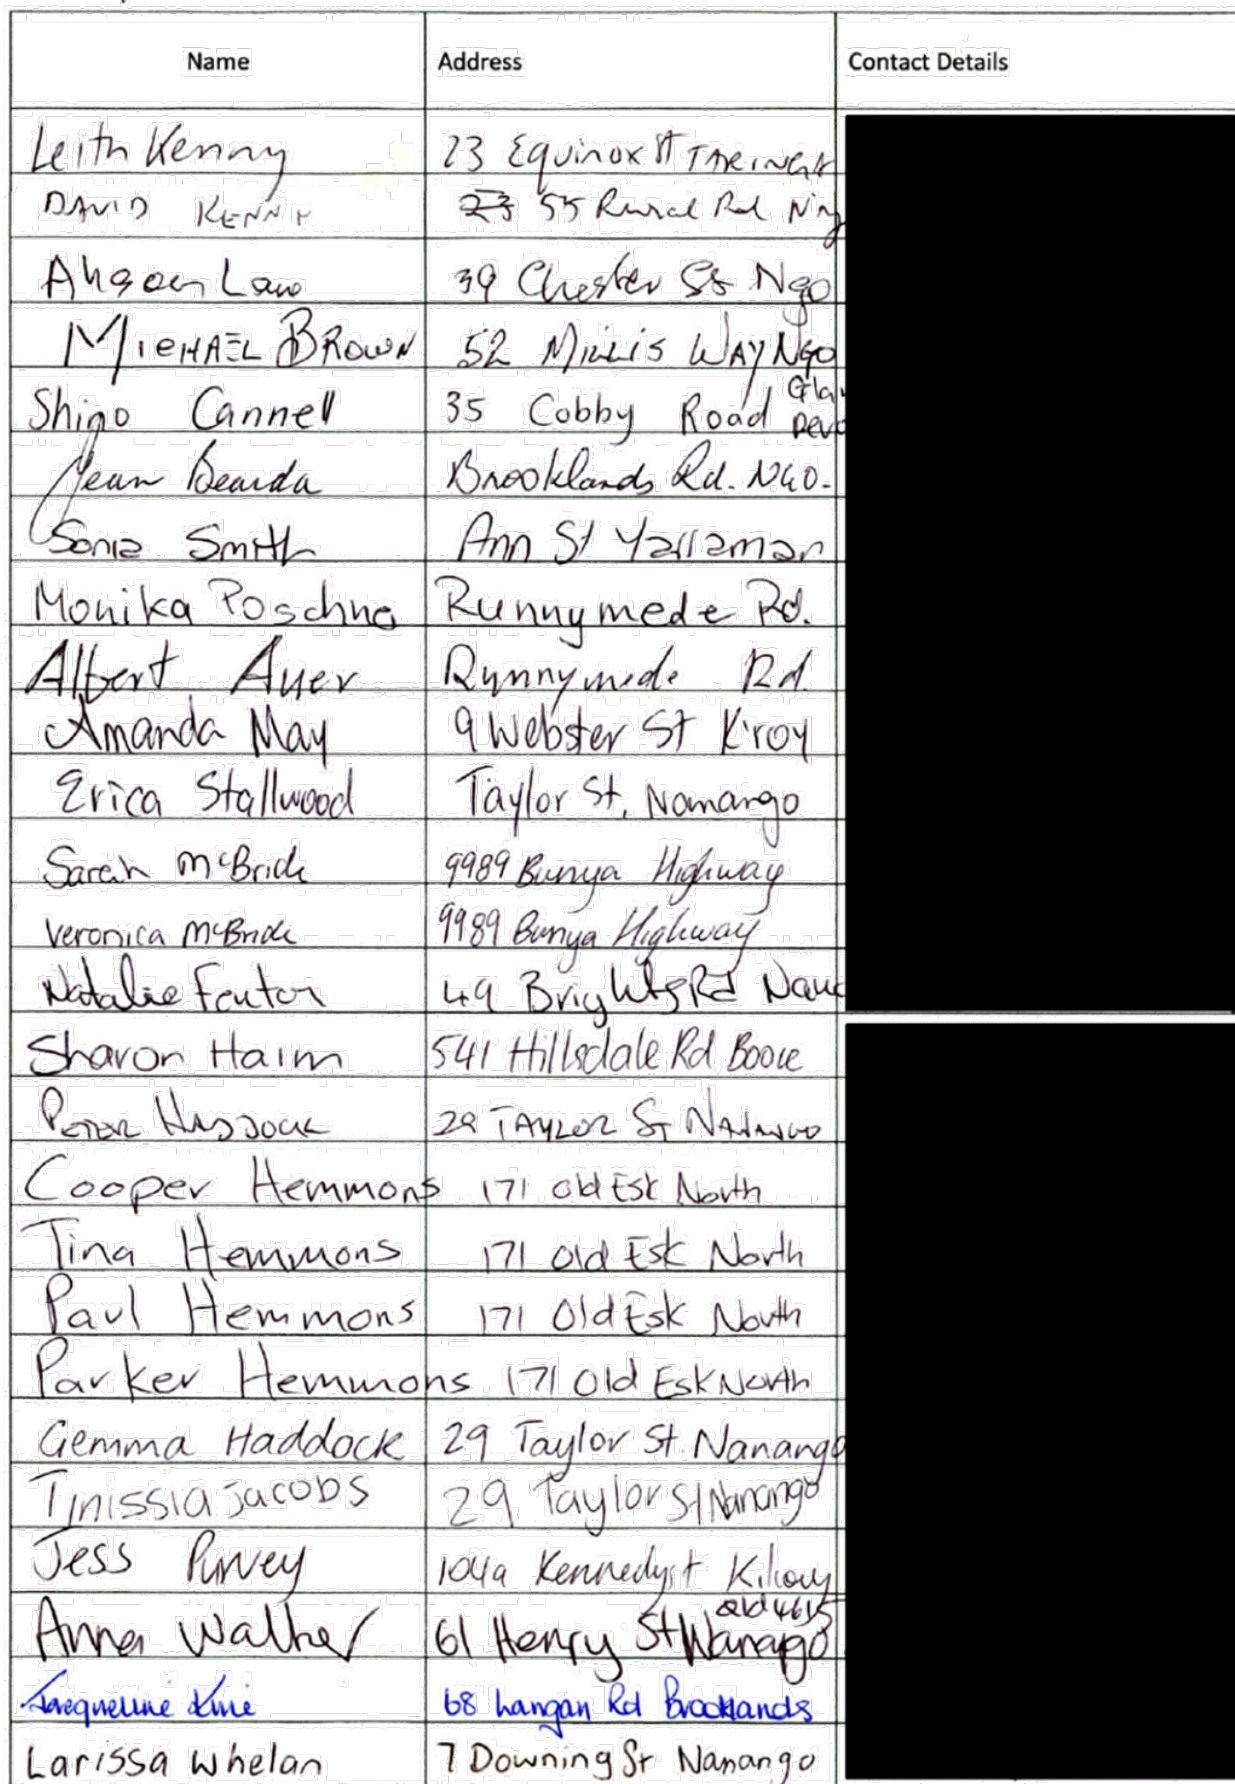 Name Address Contact Details
Leith Kenny 23 Equinox St TARINGA
DAVID KENNY 23 55 Rural Rd
Law 39 Chester St Ngo
MICHAEL BROWN 52 MILLIS WAY NGO
Shino Cannell 35 Cobby Road
Jean Brooklands Rd. NGO.
Sonia Smith Ann St Yarraman
Monika Runnymede Rd.
Albert Auer Runnymede Rd.
Amanda May 9 Webster St K'roy
Erica Stallwood Taylor St, Nanango
Sarah McBride 9989 Bunya Highway
Veronica McBride 9989 Bunya Highway
Natalie Fenton 49 Brights Rd Nana
Sharon Haim 541 Hillsdale Rd Booie
PETER HADDOCK 29 TAYLOR ST NANANGO
Cooper Hemmons 171 Old Esk North
Tina Hemmons 171 Old Esk North
Paul Hemmons 171 Old Esk North
Parker Hemmons 171 Old Esk North
Gemma Haddock 29 Taylor St. Nanango
Tinissia Jacobs 29 Taylor St Nanango
Jess Purvey 104a Kennedy st Kilcoy
Anna Walker 61 Henry St Nanango Qld 4615
Jacqueline 68 Langan Rd Brooklands
Larissa Whelan 7 Downing St Nanango